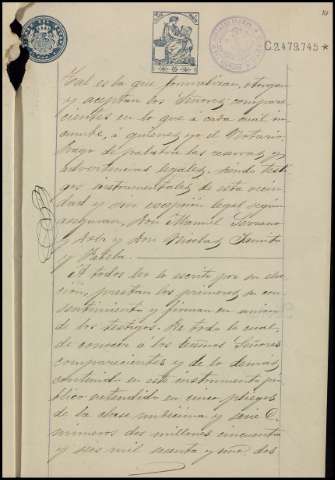 C.2.479.745*
Tal es la que formalizan, otorgan
y aceptan los Señores compare
cientes en lo que á cada cual in
cumbe, á quienes yo el Notario,
hago de palabra las reservas y
advertencias legales, siendo testi
gos instrumentales de esta vecin
dad y sin excepción legal según
aseguran, Don Manuel Serrano
y Don Nicolas
y
Á todos leo la escritura por su elec
ción, prestan los primeros su con
sentimiento y firman en union
de los testigos. De todo lo cual,
de conocer á los Señores
comparecientes y de lo demás
contenido en este instrumento pú
blico extendido en cinco pliegos
de la clase undécima y serie C.
números dos millones cincuenta
y seis mil y uno, dos